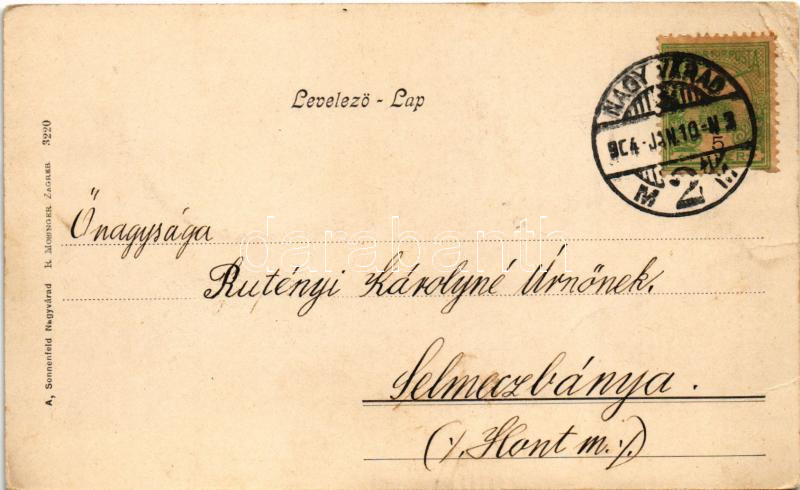 Levelező - Lap
NAGY VÁRAD
904 JAN. 10 - N 3
M 2 M
5
Őnagysága
Rutényi Károlyné Úrnőnek.
Selmeczbánya.
(/. Hont m. /.)
A, Sonnenfeld Nagyvárad R. Mosinger Zagreb 3220
darabanth